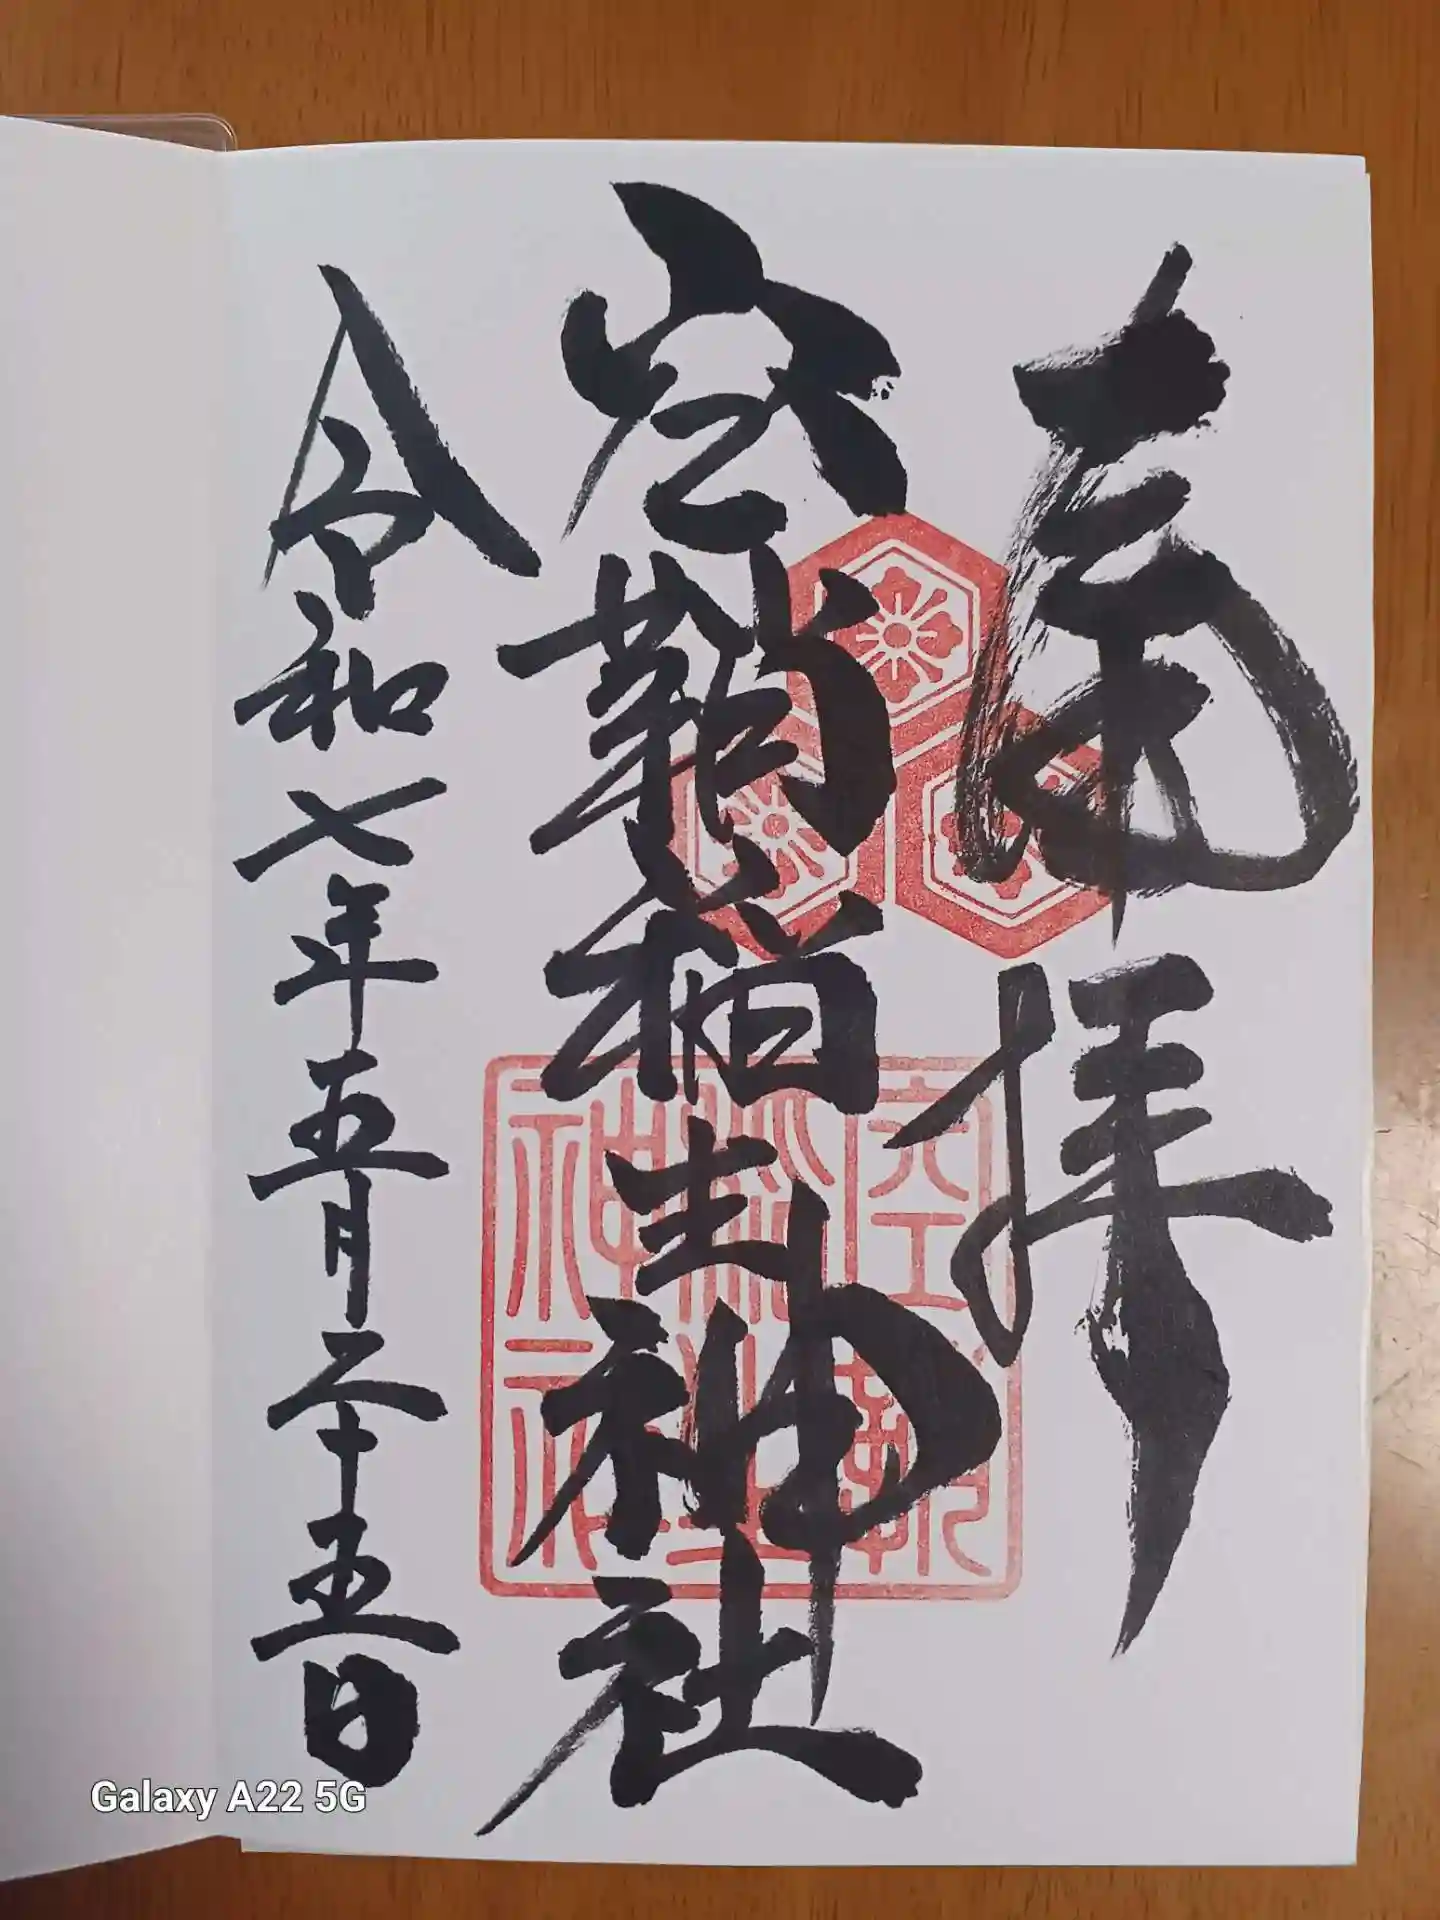 奉拝
空鞘稲生神社
令和七年五月二十五日
空鞘
稲生
神社
Galaxy A22 5G